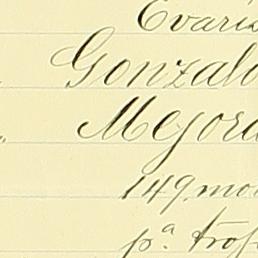 Evaris
Gonzalo
Mejora
149 mo
pª trof